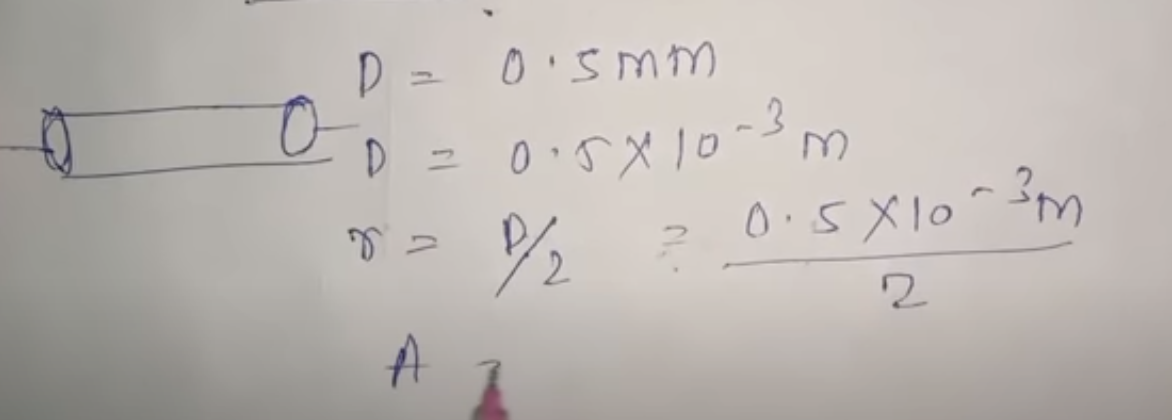 D = 0.5mm
D = 0.5×10⁻³m
r = D/2 = 0.5×10⁻³m/2
A =